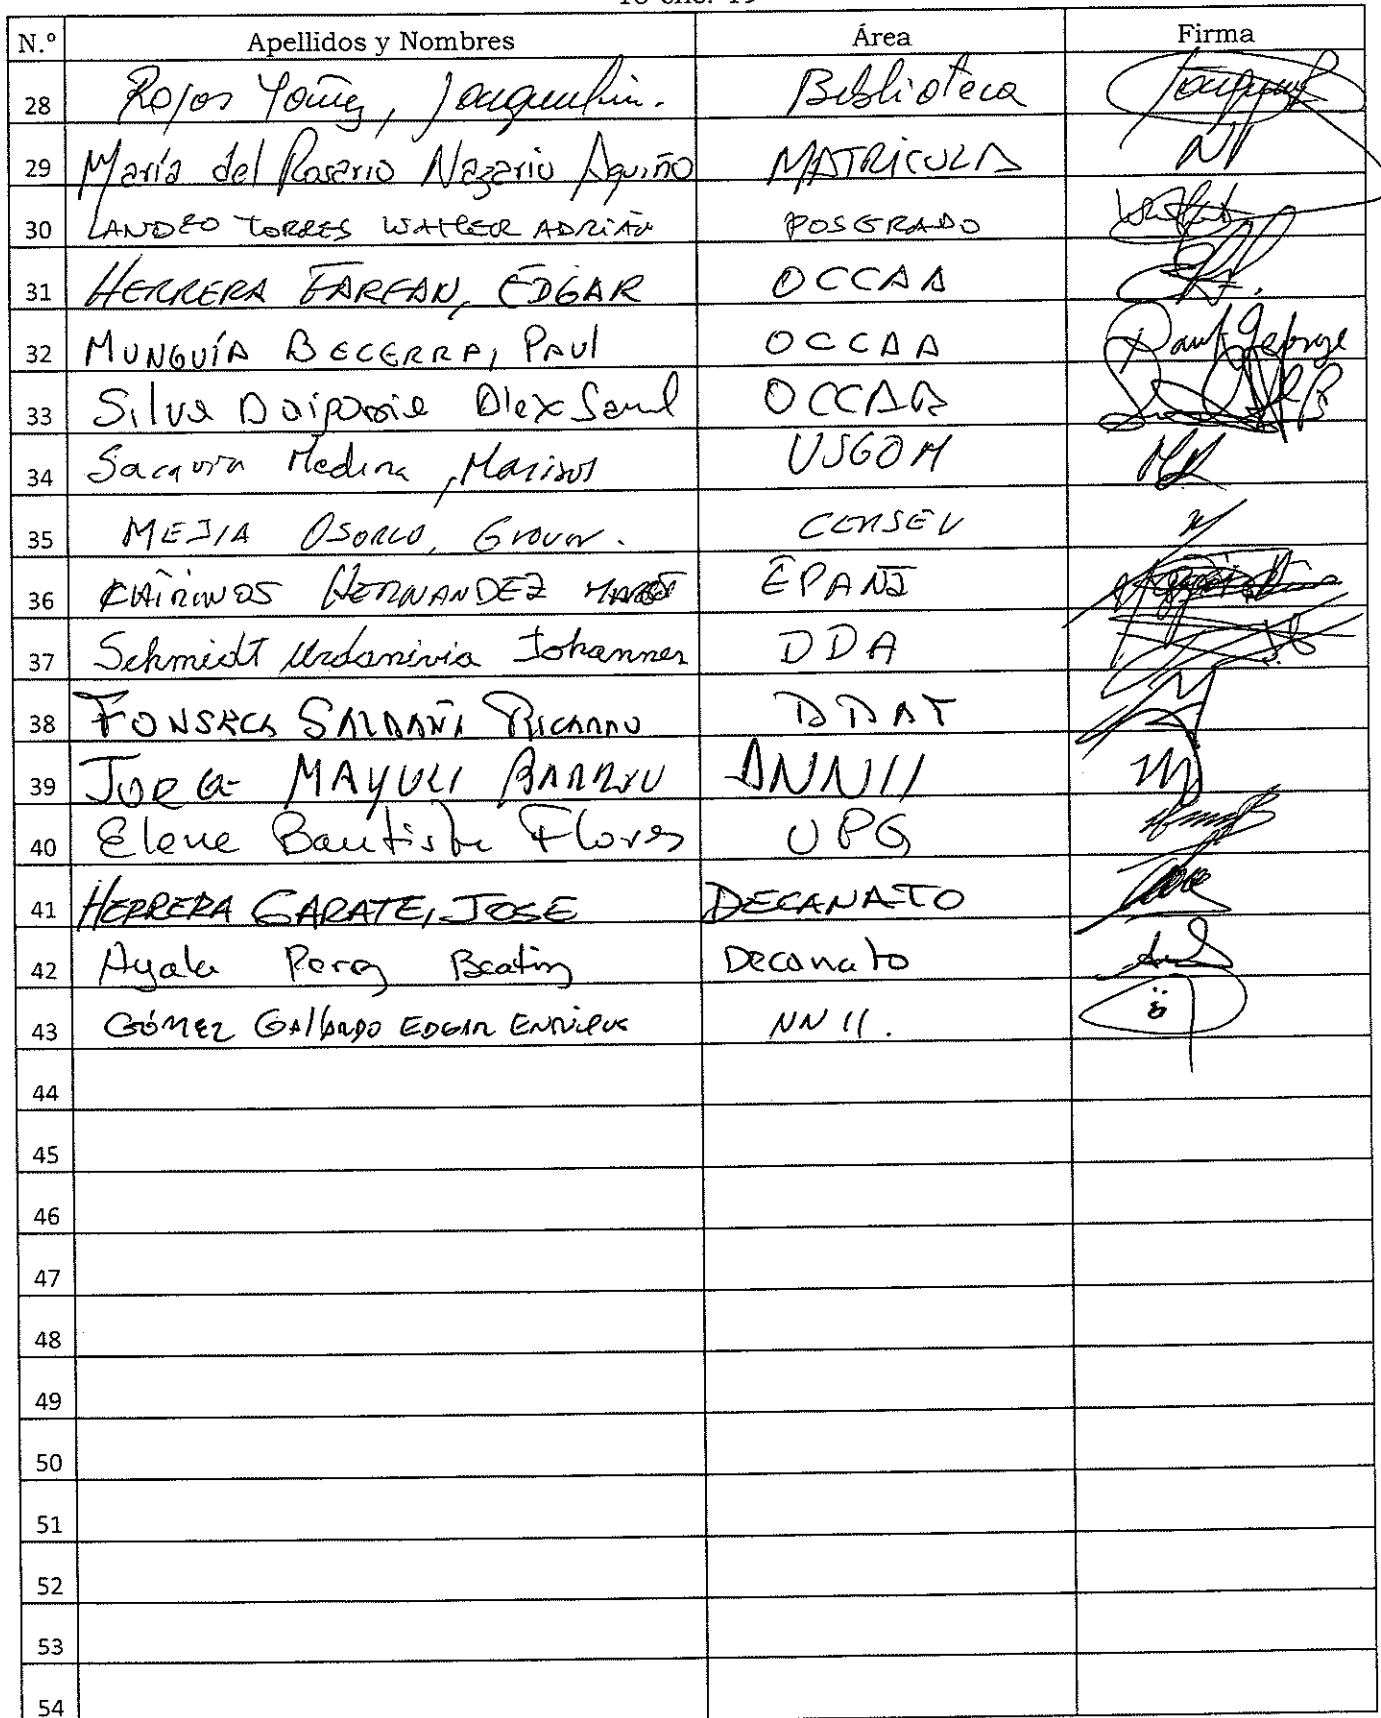 N.º Apellidos y Nombres Área Firma
28 Rojas Biblioteca
29 María del Rosario Nazario Aquiño MATRICULA
30 LANDEO TORRES WALTER ADRIÁN POSGRADO
31 HERRERA FARFAN, EDGAR OCCAA
32 MUNGUÍA BECERRA, PAUL OCCAA Paul George
33 Silva OCCAA
34 Medina, Marisol USGOM
35 MEJIA OSORIO, CERSEU
36 HERNANDEZ EPANI
37 Schmidt Urdanivia Johannes DDA
38 FONSECA SALDAÑA RICARDO DDAT
39 JORGE MAYURI ANNII
40 Elena Bautista Flores UPG
41 HERRERA GARATE, JOSE DECANATO
42 Ayala Perez Beatriz Decanato
43 GÓMEZ GAllARDO EDGAR ENRIQUE NNII.
44
45
46
47
48
49
50
51
52
53
54